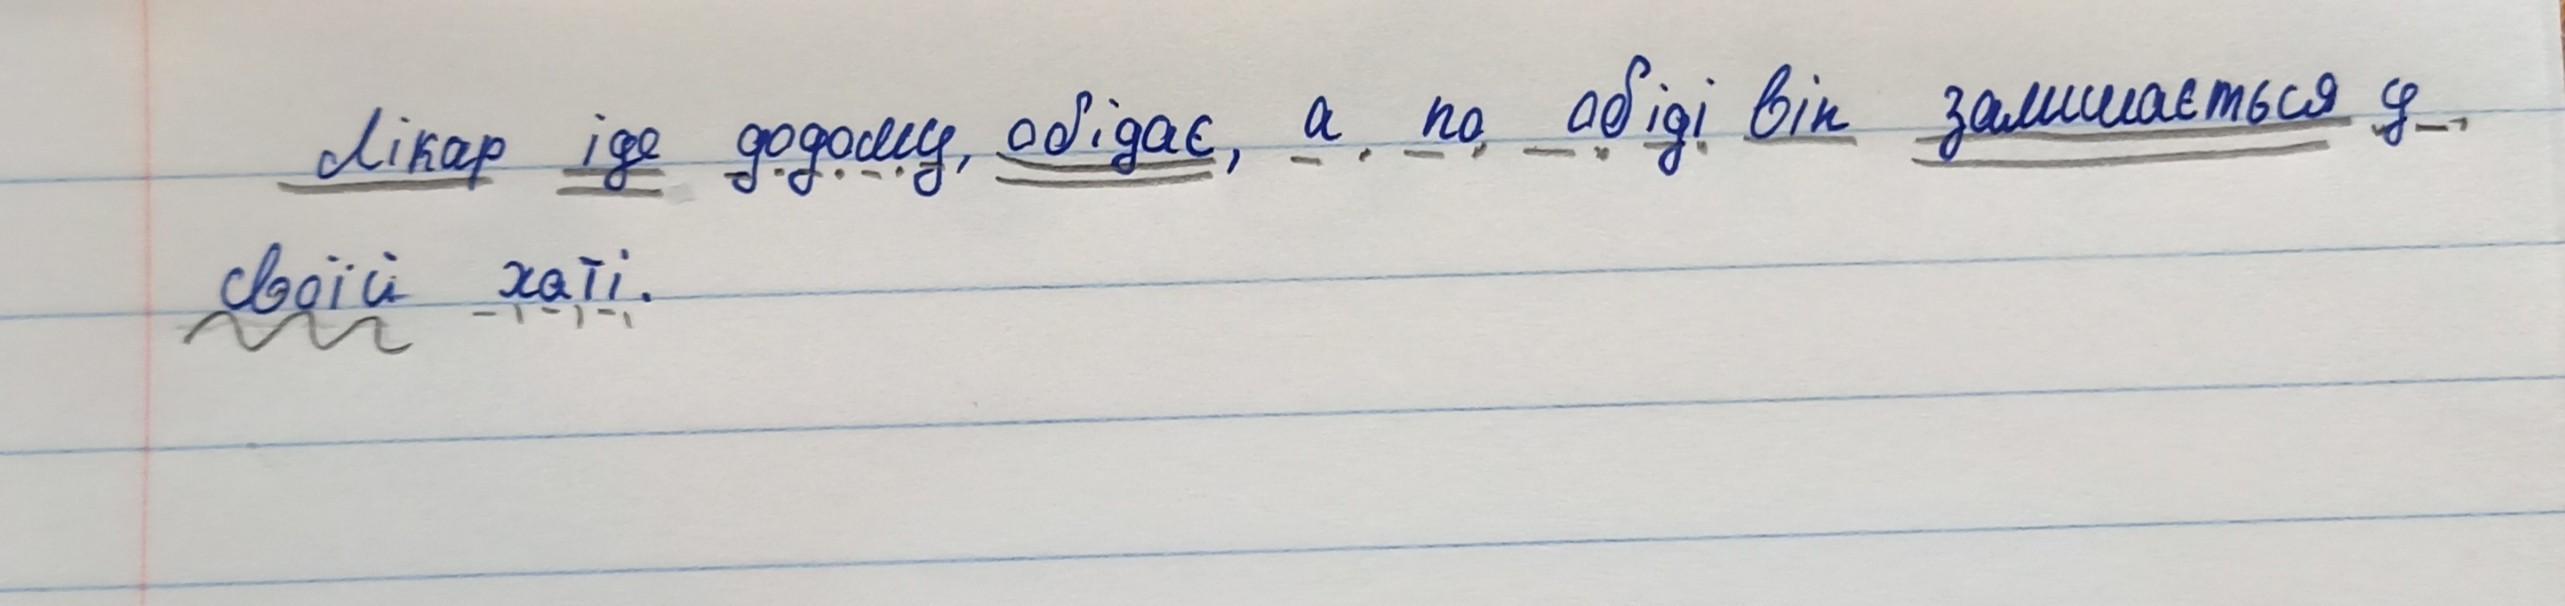 Лікар іде додому, обідає, а по обіді він залишається у
своїй хаті.